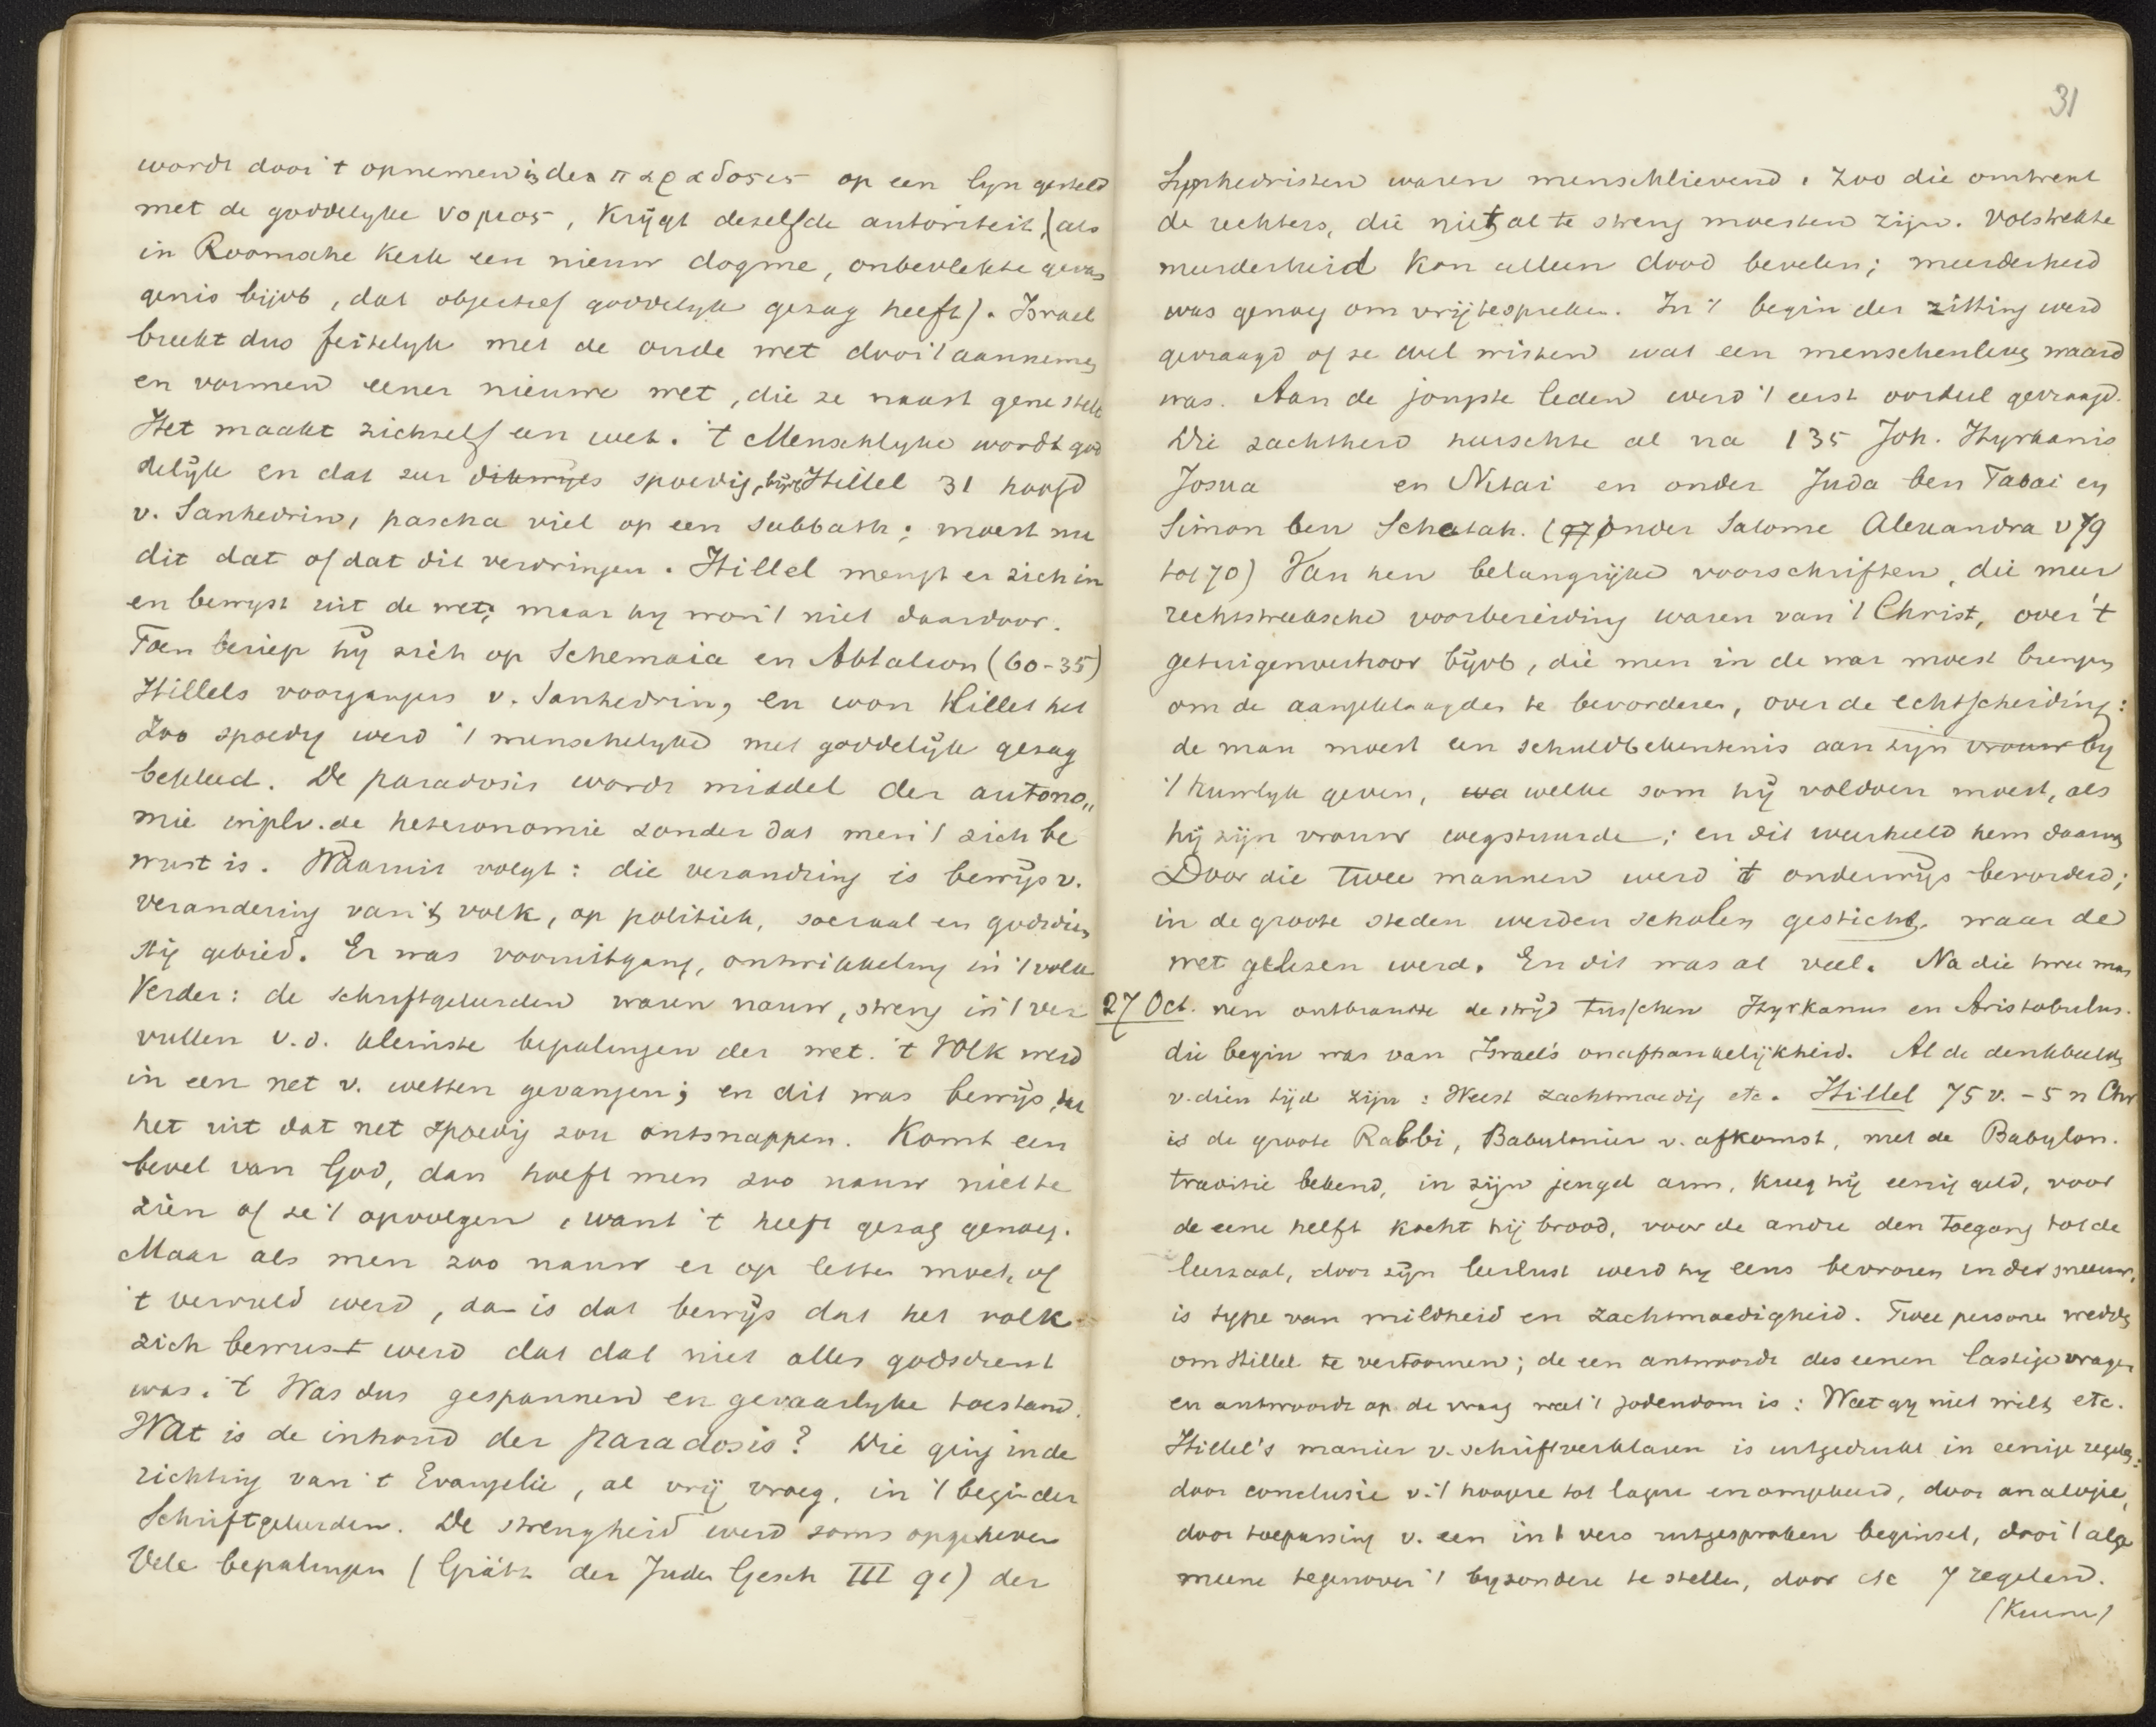 wordt door 't opnemen in de παραδοσις op een lyn gesteld
met de goddelyke νομος, krÿgt deselfde autoriteit, (als
in Roomsche Kerk een nieuw dogme, onbevlekte gevan
genis bijvb, dat objectief goddelyk gezag heeft). Israel
breekt dus feitelyk met de oude wet door 't aannemen
en vormen eener nieuwe wet, die ze naast gene stelt
Het maakt zichzelf een wet. 't Menschlyke wordt god
delÿk en dat zeer dikwyls spoedig, bijvb Hillel 31 hoofd
v. Sanhedrin, pascha viel op een sabbath; moest nu
dit dat of dat dit verdringen. Hillel mengt er zich in
en bewyst uit de wet, maar hy won 't niet daardoor.
Toen beriep hÿ zich op Schemaia en Abtalion (60-35)
Hillels voorgangers v. Sanhedrin, en won Hillel het
Zoo spoedig werd 't menschelyke met goddelÿk gezag
bekleed. De paradosis wordt middel der autono„
mie inplv. de heteronomie zonder dat men 't zich be
wust is. Waaruit volgt: die verandring is bewÿs v.
verandering van 't volk, op politiek, sociaal en godsdien
stig gebied. Er was vooruitgang, ontwikkeling in 't volk
Verder: de schriftgeleerden waren nauw, streng in 't ver
vullen v.d. kleinste bepalingen der wet. 't Volk werd
in een net v. wetten gevangen; en dit was bewÿs, dat
het uit dat net spoedig zou ontsnappen. Komt een
bevel van God, dan hoeft men zoo nauw niet te
zien of ze 't opvolgen, want 't heeft gezag genoeg.
Maar als men zoo nauw er op letten moet, of
't vervuld werd, dan is dat bewÿs dat het volk
zich bewust werd dat dat niet alles godsdienst
was. 't Was dus gespannen en gevaarlyke toestand.
Wat is de inhoud der paradosis? Die ging in de
richting van 't Evangelie, al vrÿ vroeg, in 't begin der
Schriftgeleerden. De strengheid werd soms opgeheven
Vele bepalingen (Grätz der Juden Gesch III 91) der
31
Synhedristen waren menschlievend. Zoo die omtrent
de rechters, die niet al te streng moesten zijn. Volstrekte
meerderheid kon alleen dood bevelen; meerderheid
was genoeg om vrij te spreken. In 't begin der zitting werd
gevraagd of ze wel wisten wat een menschenleven waard
was. Aan de jongste leden werd 't eerst oordeel gevraagd.
Die zachtheid heerschte al na 135 Joh. Hyrkanis
Josua en Nitai en onder Juda ben Tabai en
Simon ben Schetah. (onder Salome Alexandra v 79
tot 70) Van hen belangrijke voorschriften, die meer
rechtstreeksche voorbereiding waren van 't Christ, over 't
getuigenverhoor bÿvb, die men in de war moest brengen
om de aangeklaagden te bevorderen, over de echtscheiding:
de man moest een schuldbekentenis aan zijn vrouw by
't huwlyk geven, wa welke som hÿ voldoen moest, als
hÿ zijn vrouw wegstuurde; en dit weerhield hem daarvan
Door die twee mannen werd 't onderwÿs bevorderd;
in de groote steden werden scholen gesticht, waar de
wet gelezen werd. En dit was al veel. Na die twee man
27 Oct. nen ontbrandde de strÿd tusschen Hyrkanus en Aristobulus.
die begin was van Israel's onafhankelÿkheid. Al de denkbeelden
v. dien tÿd zijn: Weest zachtmoedig etc. Hillel 75 v. - 5 n Chr
is de groote Rabbi, Babylonier v. afkomst, met de Babylon.
traditie bekend, in zijn jeugd arm, kreeg hÿ eenig geld, voor
de eene helft kocht hÿ brood, voor de andre den toegang tot de
leerzaal, door zÿn leerlust werd hy eens bevroren in de sneeuw,
is type van mildheid en zachtmoedigheid. Twee personen wedden
om Hillel te vertoornen; de een antwoordt des eenen lastige vragen
en antwoordt op de vraag wat 't jodendom is: Wat gy niet wilt, etc.
Hillel's manier v. schriftverklaren is uitgedrukt in eenige regelen:
door conclusie v. 't hoogere tot lagere en omgekeerd, door analogie,
door toepassing v. een in 't vers uitgesproken beginsel, door 't alge
meene tegenover 't byzondere te stellen, door etc 7 regelend.